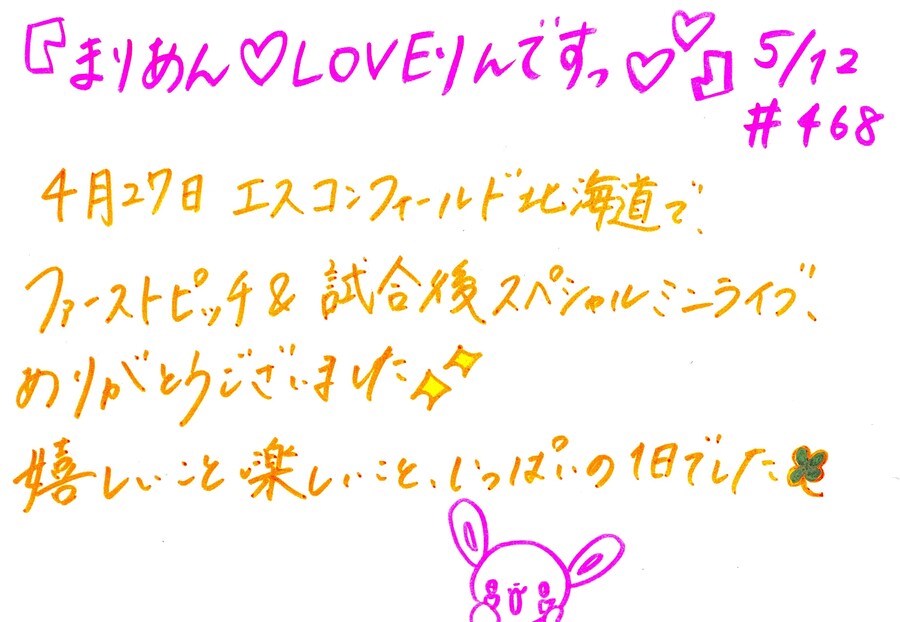 『まりあん♡LOVEりんですっ♡♡』 5/12
#468
4月27日 エスコンフィールド北海道で、
ファーストピッチ&試合後スペシャルミニライブ、
ありがとうございました
嬉しいこと楽しいこと、いっぱいの1日でした